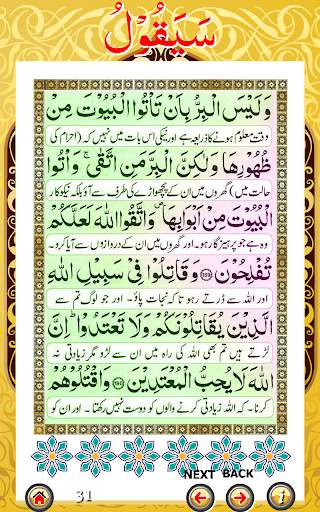 سَيَقُوْلُ
وَلَيْسَ الْبِرُّ بِاَنْ تَاْتُوا الْبُيُوْتَ مِنْ
وقت معلوم ہونے کا ذریعہ ہے اور نیکی اس بات میں نہیں کہ (احرام کی
ظُهُوْرِهَا وَلٰكِنَّ الْبِرَّ مَنِ اتَّقٰى ۚ وَاْتُوا
حالت میں) گھروں میں ان کے پچھواڑے کی طرف سے آؤ بلکہ نیکوکار
الْبُيُوْتَ مِنْ اَبْوَابِهَا ۪ وَاتَّقُوا اللّٰهَ لَعَلَّكُمْ
وہ ہے جو پرہیز گار ہو۔ اور گھروں میں ان کے دروازوں سے آیا کرو۔
تُفْلِحُوْنَ ﴿189﴾ وَقَاتِلُوْا فِيْ سَبِيْلِ اللّٰهِ
اور اللہ سے ڈرتے رہو تاکہ نجات پاؤ۔ اور جو لوگ تم سے
الَّذِيْنَ يُقَاتِلُوْنَكُمْ وَلَا تَعْتَدُوْا ۭ اِنَّ
لڑتے ہیں تم بھی اللہ کی راہ میں ان سے لڑو مگر زیادتی نہ
اللّٰهَ لَا يُحِبُّ الْمُعْتَدِيْنَ ﴿190﴾ وَاقْتُلُوْهُمْ
کرنا۔ کہ اللہ زیادتی کرنے والوں کو دوست نہیں رکھتا۔ اور ان کو
NEXT BACK
31
i